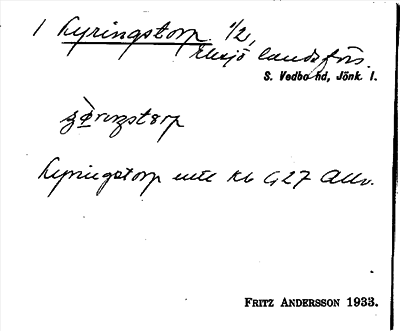 1 Kyringstorp 1/2,
Eksjö landsförs.
S. Vedbo hd, Jönk. l.
Kyringstorp enl. Kb G27 Allm.
FRITZ ANDERSSON 1933.